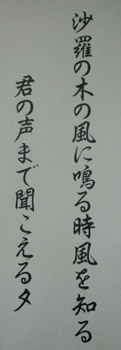 沙羅の木の風に鳴る時風を知る
君の声まで聞こえる夕